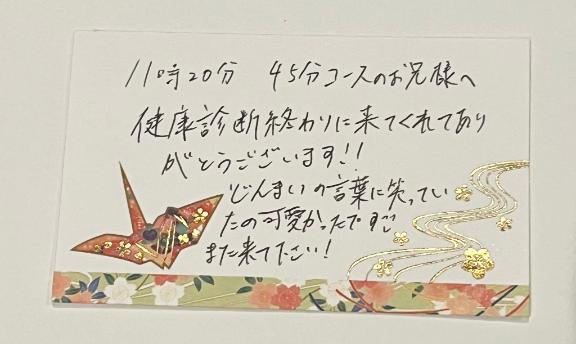 11時20分 45分コースのお兄様へ
健康診断終わりに来てくれてあり
がとうございます!!
じんまいの言葉に笑ってい
たの可愛かったですご
また来て下さい!